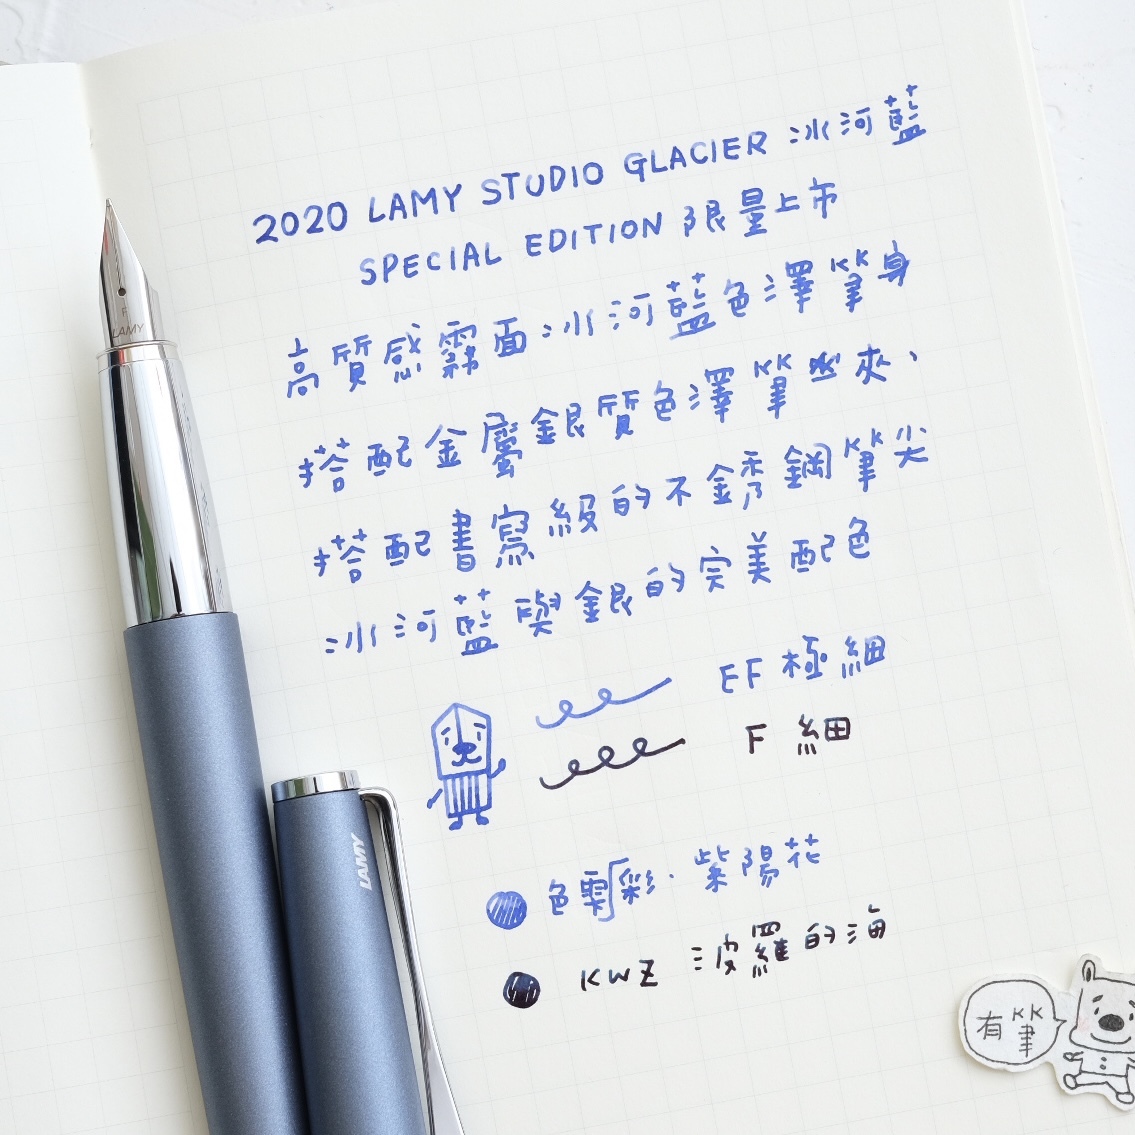 2020 LAMY STUDIO GLACIER 冰河藍
SPECIAL EDITION 限量上市
高質感霧面冰河藍色澤筆身
搭配金屬銀質色澤筆夾、
搭配書寫級的不銹鋼筆尖
冰河藍與銀的完美配色
EF 極細
F 細
色彩雫・紫陽花
KWZ 波羅的海
F
LAMY
LAMY
有筆